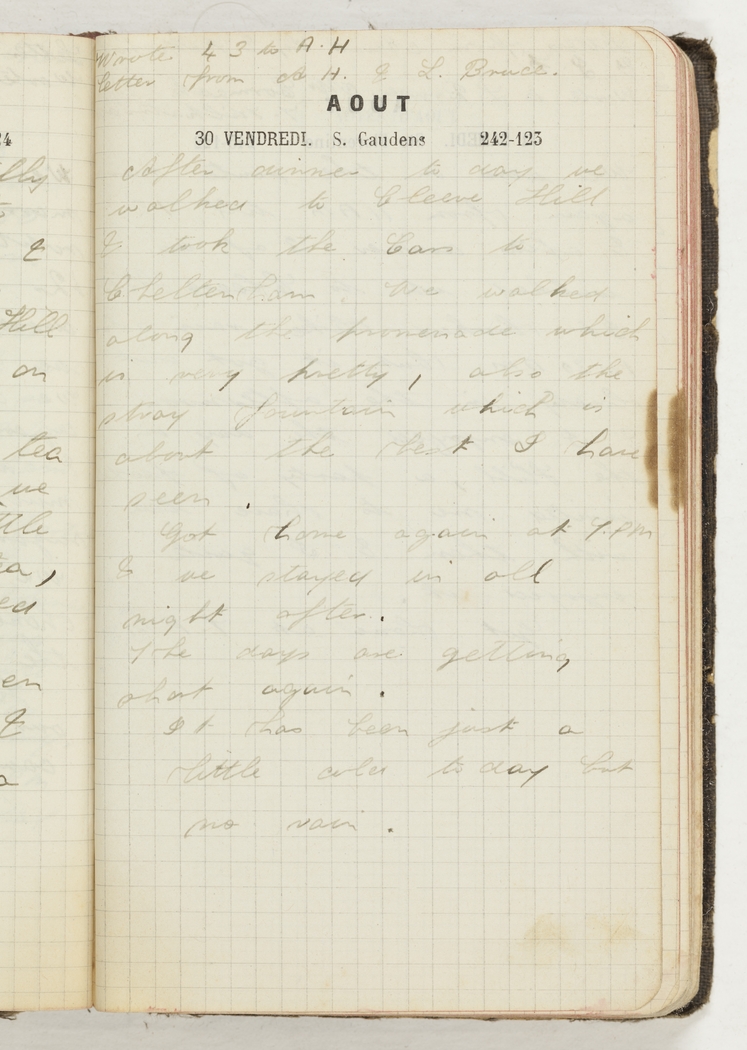 Wrote 43 to A.H
letter from A H. & L. Bruce.
AOUT
30 VENDREDI. S. Gaudens 242-123
After dinner to day we
walked to Cleeve Hill
& took the Cars to
Cheltenham. We walked
along the promenade which
is very pretty, also the
stray fountain which is
about the best I have
seen.
Got home again at 7.PM
& we stayed in all
night after.
The days are getting
short again.
It has been just a
little cold to day but
no rain.
24
lly
&
Hill
on
tea
we
ttle
ea,
ed
en
&
a